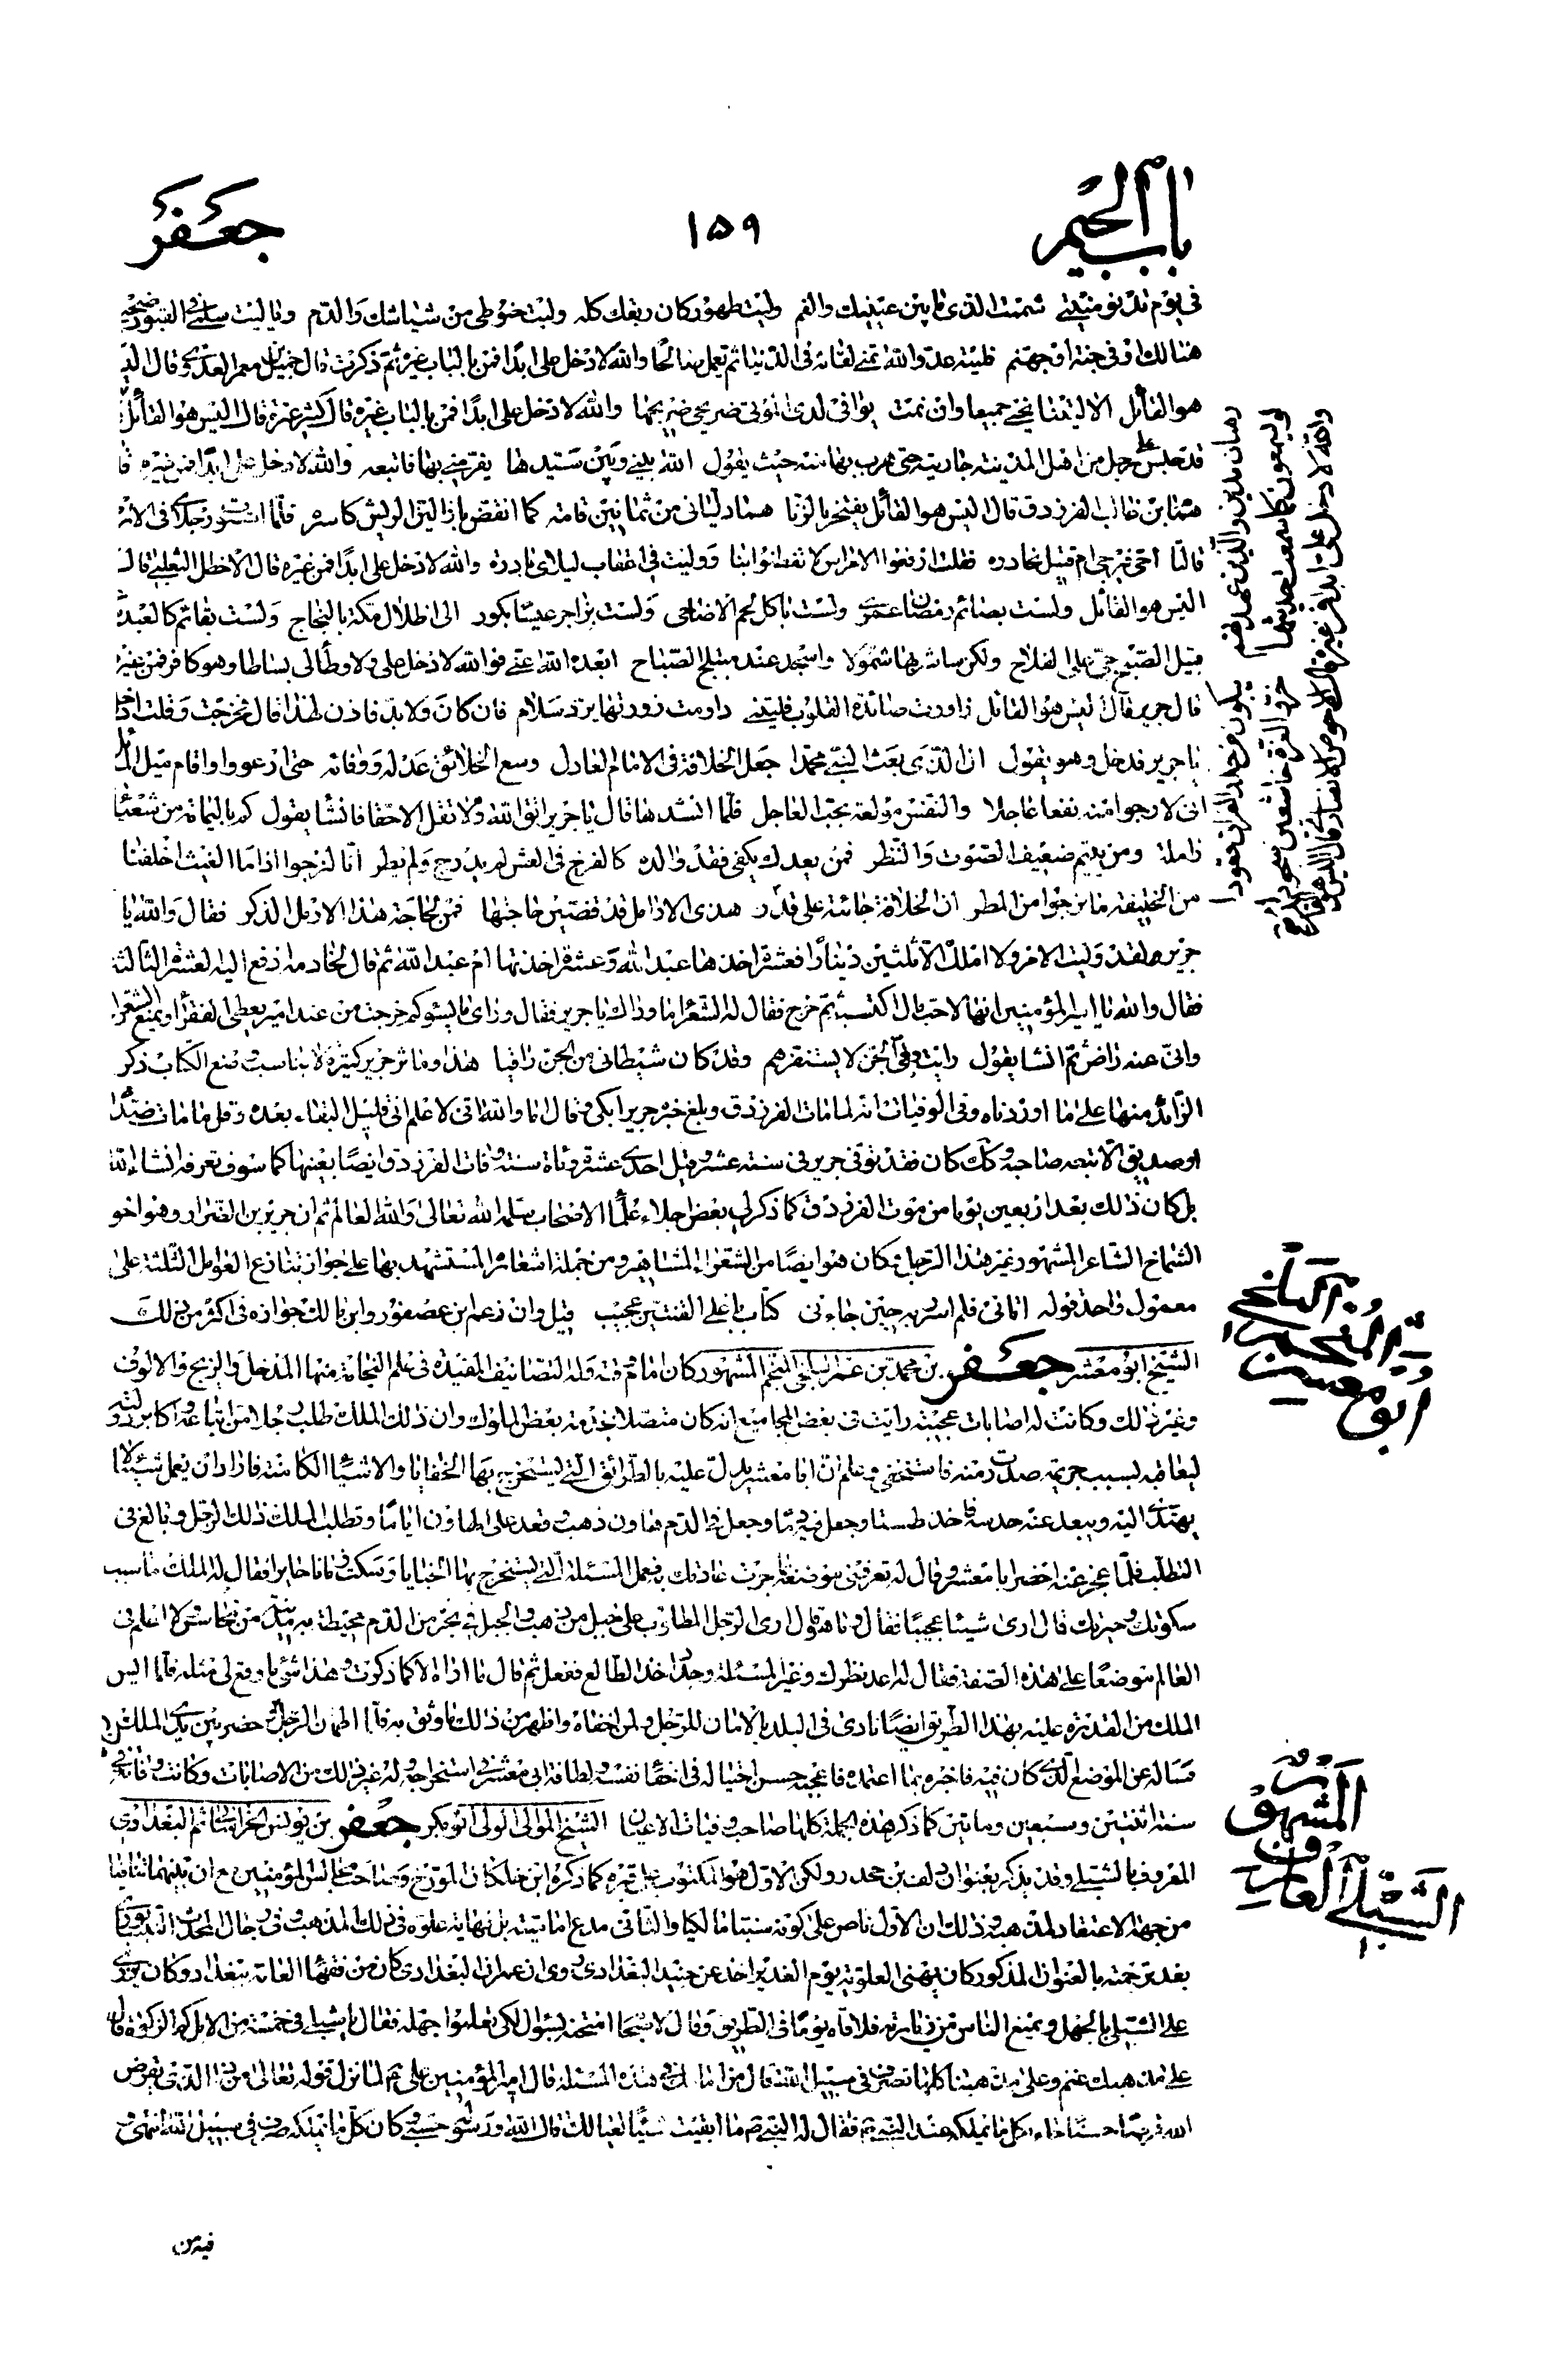 باب الجيم
١٥٩
جعفر
في يوم تدنو منيتي شممت الذي ما بين عينيك والفم وليت طهوركان ريقك كله وليت حنوطي من مشاشك والدم ويا ليت سلمى في القبور ضجيعتي
هنالك او في جنة او جهنم فليته عدو الله تمنى لقائه في الدنيا ثم يعمل صالحا والله لا دخل على ابدا فمن بالباب غيره ثم ذكرت قال جميل بن معمر العذري قال
هو القائل الا ليتنا نحيى جميعا وان نمت يوافي لدى الموتى ضريحي ضريحها والله لا دخل على ابدا فمن بالباب غيره قال كثير عزة قال اليس هو القائل
رهبان مدين والذين عهدتهم يبكون من حذر العذاب قعودا
لو يسمعون كما سمعت حديثها خروا لعزة خاشعين سجودا
والله لا دخل على ابدا فمن غيره قال الاحوص الانصاري قال اليس هو
قد حلس على رجل من اهل المدينة جارية حتى هرب بها منه حيث يقول الله بيني وبين سيدها يفر مني بها فاتبعه والله لا دخل على ابدا فمن غيره
همام بن غالب الفرزدق قال اليس هو القائل يفتخر بالزنا هما دلياني من ثمانين قامة كما انقض باز اليق الريش كاسره فلما استوت رجلاي في الارض
قالتا احي يرجى ام قتيل نحاذره فقلت ارفعوا الامراس لا تفطنوا بنا ووليت في اعقاب ليل ابادره والله لا دخل على ابدا فمن غيره قال الاخطل التغلبي قال
اليس هو القائل ولست بصائم رمضان عمري ولست باكل لحم الاضاحي ولست بزاجر عيسا بكور الى اطلال مكة بالنجاح ولست بقائم كالعبد
قبيل الصبح حي على الفلاح ولكن ساشربها شمولا واسجد عند مبتلج الصباح ابعده الله عني فوالله لا دخل على ولا وطا لي بساطا وهو كافر فمن غيره
قال جرير قال اليس هو القائل زاورت صائدة القلوب فليتني دامت زورتها برد سلام فان كان ولا بد فاذن لهذا قال فخرجت وقلت ادخل
يا جرير فدخل وهو يقول ان الذي بعث النبي محمدا جعل الخلافة في الامام العادل وسع الخلائق عدله ووفائه حتى ارعووا واقام ميل المائل
اني لارجوا منه نفعا عاجلا والنفس مولعة بحب العاجل فلما انشدها قال يا جرير اتق الله ولا تقل الا حقا فانشا يقول كم باليمامة من شعثاء
ارملة ومن يتيم ضعيف الصوت والنظر فمن يعدك يكفي فقد والده كالفرخ في العش لم يدرج ولم يطر انا لنرجوا اذا ما الغيث اخلفنا
من الخليفة ما نرجوا من المطر ان الخلافة جائته على قدر هذي الارامل قد قضيت حاجتها فمن لحاجة هذا الارمل الذكر فقال والله يا
جرير لقد وليت الامر ولا املك الا ثلثين دينارا فعشرة اخذها عبد الله وعشرة اخذتها ام عبد الله ثم قال لخادمه ادفع اليه العشرة الثالثة
فقال والله يا امير المؤمنين انها لاحب مال اكتسبته ثم خرج فقال له الشعراء ما وراك يا جرير فقال وراى ما يسوكم خرجت من عند امير يعطى الفقراء ويمنع الشعراء
واني عنه راض ثم انشا يقول رايت رقى الجن لا يستفزهم وقد كان شيطاني من الجن راقيا هذا وما ثر جرير كثيرة لا يناسب وضع الكتاب ذكر
الزائد منها على ما اوردناه وفي الوفيات انه لما مات الفرزدق وبلغ خبره جريرا بكى وقال اما والله اني لا علم اني قليل البقاء بعده وقل ما مات ضد
او صديق الا تبعه صاحبه وكك كان فقد توفي جرير في سنة عشر وقيل احدى عشرة ومأة سنة وفات الفرزدق ايضا بعينها كما سوف تعرفه انشاء الله
بل كان ذلك بعد اربعين يوما من موت الفرزدق كما ذكر لي بعض اجلاء علماء الاصحاب سلمه الله تعالى والله العالم ثم ان جرير بن الضرار وهو اخو
الشماخ الشاعر المشهور غير هذا الرجل وكان هو ايضا من الشعراء المشاهير ومن جملة اشعاره المستشهد بها على جواز تنازع العوامل الثلثة على
معمول واحد قوله اتاني فلم اسرر به حين جاءني كتاب باعلى القنتين عجيب قيل وان زعم ابن عصفور وابن مالك جوازه في اكثر من ذلك
ابو معشر المنجم البلخي
الشيخ ابو معشر جعفر بن محمد بن عمر البلخي المنجم المشهور كان امام وقته وله التصانيف المفيدة في علم النجامة منها المدخل والزيج والالوف
وغير ذلك وكانت له اصابات عجيبة رايت في بعض المجاميع انه كان متصلا بخدمة بعض الملوك وان ذلك الملك طلب رجلا من اتباعه واكابر دولته
ليعاقبه بسبب جريمة صدرت منه فاستخفى وعلم ان ابا معشر يدل عليه بالطرائق التي يستخرج بها الخفايا والاشياء الكامنة فاراد ان يعمل شيئا لا
يهتدى اليه ويبعد عنه حدسه فاخذ طستا وجعل فيه دما وجعل في الدم هاون ذهب وقعد على الهاون اياما وتطلب الملك ذلك الرجل وبالغ في
التطلب فلما عجز عنه احضر ابا معشر وقال له تعرفني موضعه بما جرت عادتك به فعمل المسئلة التي يستخرج بها الخبايا وسكت زمانا حايرا فقال له الملك ما سبب
سكوتك وحيرتك قال ارى شيئا عجيبا فقال وما هو قال ارى الرجل المطلوب على جبل من ذهب والجبل في بحر من الدم محيطة به مدينة من نحاس ولا اعلم في
العالم موضعا على هذه الصفة فقال له اعد نظرك وغير المسئلة وجدد اخذ الطالع ففعل ثم قال ما اراه الا كما ذكرت وهذا شئ ما وقع لي مثله فلما ايس
الملك من القدرة عليه بهذا الطريق ايضا نادى في البلد بالامان للرجل ولمن اخفاه واظهر من ذلك ما وثق به فلما اطمان الرجل حضر بين يدي الملك
فساله عن الموضع الذي كان فيه فاخبره بما اعتمده فاعجبه حسن احتياله في اخفاء نفسه ولطافة ابي معشر في استخراجه وله غير ذلك من الاصابات وكانت وفاته في
سنة اثنتين وسبعين ومأتين كما ذكر هذه الجملة كلها صاحب وفيات الاعيان الشيخ المولى الولي ابو بكر جعفر بن يونس الخراساني ثم البغدادي
الشبلي العارف المشهور
المعروف بالشبلي وقد يذكر بعنوان دلف بن جحدر ولكن الاول هو المكتوب على قبره كما ذكره ابن خلكان المورخ وصاحب مجالس المؤمنين مع ان بينهما تنافيا
من جهة الاعتقاد لمذهبه وذلك ان الاول ناص على كونه سنيا مالكيا والثاني مدع اماميته بل نهاية علوه في ذلك المذهب وفي رجال المحدث النيسابوري
بعد ترجمته بالعنوان المذكور كان يهنى العلوية يوم الغدير اخذ عن جنيد البغدادي وروى ان عمران البغدادي كان من فقهاء العامة ببغداد وكان يزري
على الشبلي بالجهل ويمنع الناس من زيارته فلاقاه يوما في الطريق وقال لاصحابه امتحنه بسئوال لكي تعلموا جهله فقال يا شبلي في خمسة من الابل كم الزكوة قال
على مذهبك غنم وعلى مذهبنا كلها تصرف في سبيل الله قال من امامك في هذه المسئلة قال امير المؤمنين على ع لما نزل قوله تعالى من ذا الذي يقرض
الله قرضا حسنا جاء بكل ما يملكه عند النبي ص فقال له النبي ص ما ابقيت شيئا لعيالك قال الله ورسوله حسبي وكان كل ما يملكه صرف في سبيل الله انتهى و
فيه من